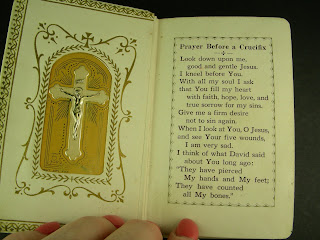 Prayer Before a Crucifix
Look down upon me,
good and gentle Jesus.
I kneel before You.
With all my soul I ask
that You fill my heart
with faith, hope, love, and
true sorrow for my sins.
Give me a firm desire
not to sin again.
When I look at You, O Jesus,
and see Your five wounds,
I am very sad.
I think of what David said
about You long ago:
"They have pierced
My hands and My feet;
They have counted
all My bones."